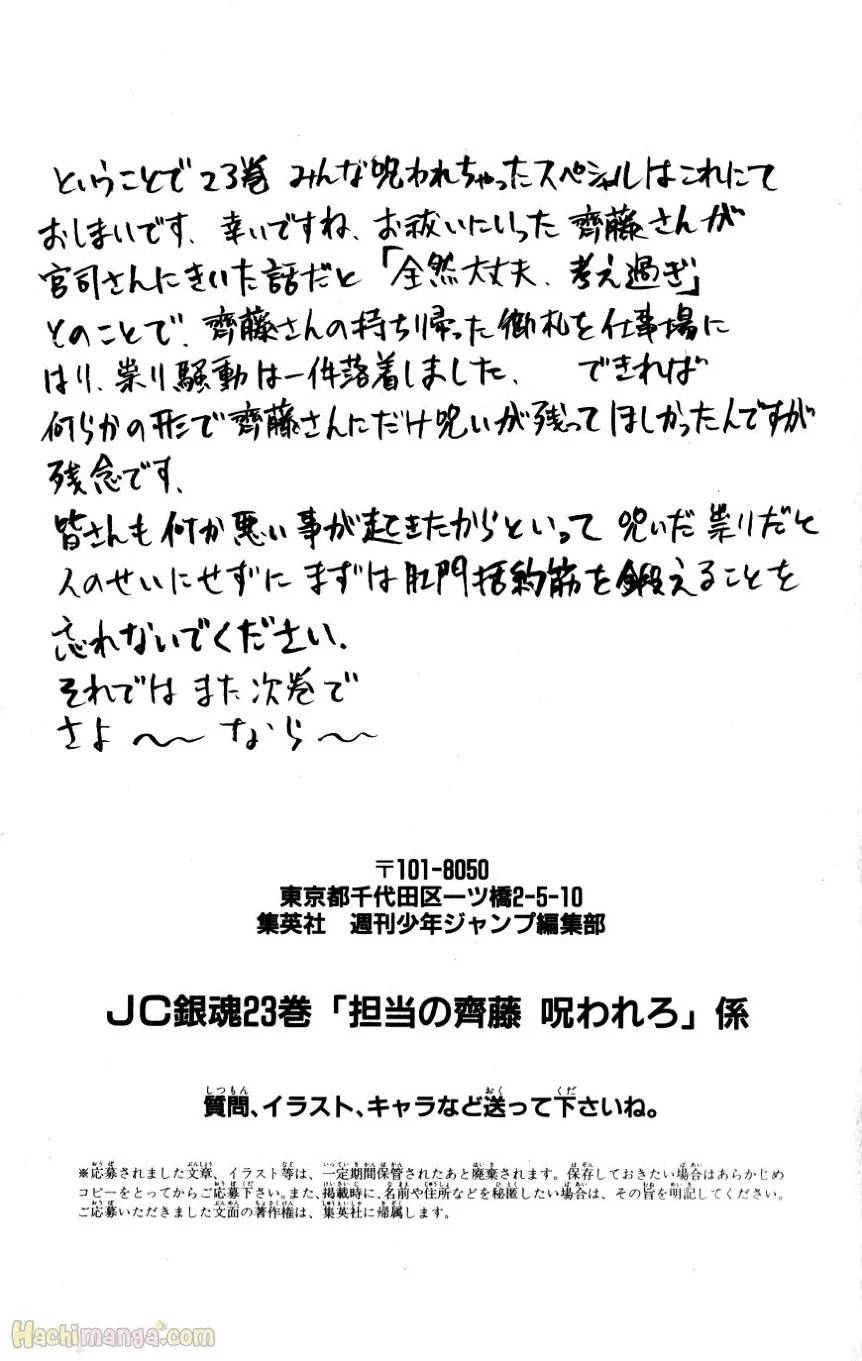 ということで23巻 みんな呪われちゃったスペシャルはこれにて
おしまいです、幸いですね、お祓いにいった齊藤さんが
宮司さんにきいた話だと「全然大丈夫、考え過ぎ」
とのことで、齊藤さんの持ち帰った御札を仕事場に
はり、祟り騒動は一件落着しました、 できれば
何らかの形で齊藤さんにだけ呪いが残ってほしかったんですが
残念です、
皆さんも何か悪い事が起きてきたからといって呪いだ祟りだと
人のせいにせずにまずは肛門括約筋を鍛えることを
忘れないでください、
それではまた次巻で
さよ〜なら〜
〒101-8050
東京都千代田区一ツ橋2-5-10
集英社 週刊少年ジャンプ編集部
JC銀魂23巻「担当の齊藤 呪われろ」係
質問、イラスト、キャラなど送って下さいね。
※応募されました文章、イラスト等は、一定期間保管されたあと廃棄されます。保存しておきたい場合はあらかじめ
コピーをとってからご応募下さい。また、掲載時に、名前や住所などを秘匿したい場合は、その旨を明記してください。
ご応募いただきました文面の著作権は、集英社に帰属します。
Hachimanga.com